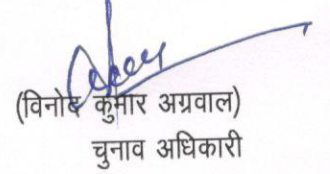 (विनोद कुमार अग्रवाल)
चुनाव अधिकारी